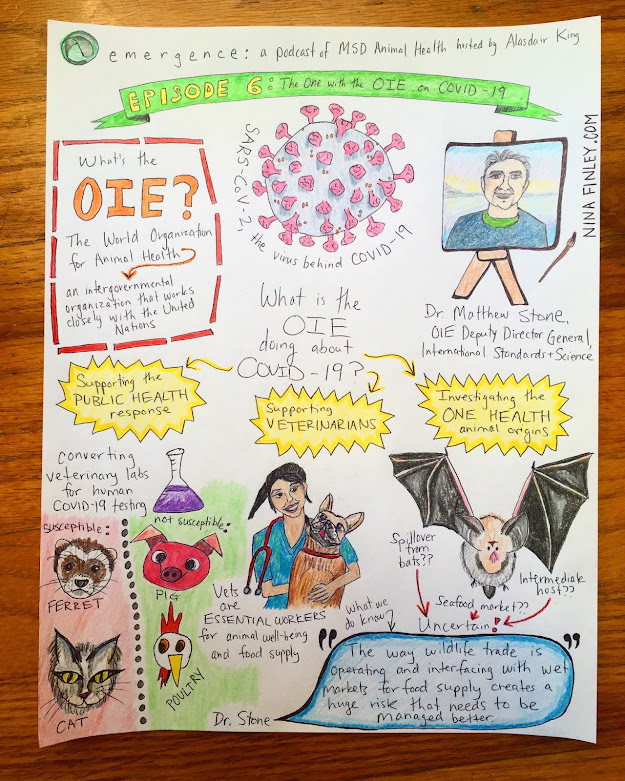 emergence: a podcast of MSD Animal Health hosted by Alasdair King
EPISODE 6: The One with the OIE on COVID-19
NINA FINLEY.COM
What's the
OIE?
The World Organization
for Animal Health
an intergovernmental
organization that works
closely with the United
Nations
SARS-CoV-2,
the virus behind COVID-19
Dr. Matthew Stone,
OIE Deputy Director General,
International Standards + Science
What is the
OIE
doing about
COVID-19?
Supporting the
PUBLIC HEALTH
response
Supporting
VETERINARIANS
Investigating the
ONE HEALTH
animal origins
converting
veterinary labs
for human
COVID-19 testing
susceptible:
FERRET
CAT
not susceptible:
PIG
POULTRY
Vets
are
ESSENTIAL WORKERS
for animal well-being
and food supply
Spillover
from
bats??
Seafood market??
Intermediate
host??
Uncertain!
What we
do know
"The way wildlife trade is
operating and interfacing with wet
markets for food supply creates a
huge risk that needs to be
managed better."
Dr. Stone